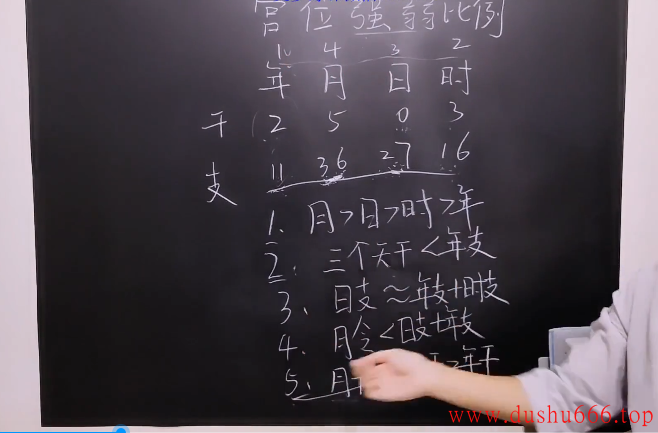 宫位强弱比例
10 4 3 2
年 月 日 时
干 2 5 0 3
支 11 36 27 16
1、月>日>时>年
2、三个天干<年支
3、日支≈年支+时支
4、月令<日支+年支
5、月 >年干
www.dushu666.top